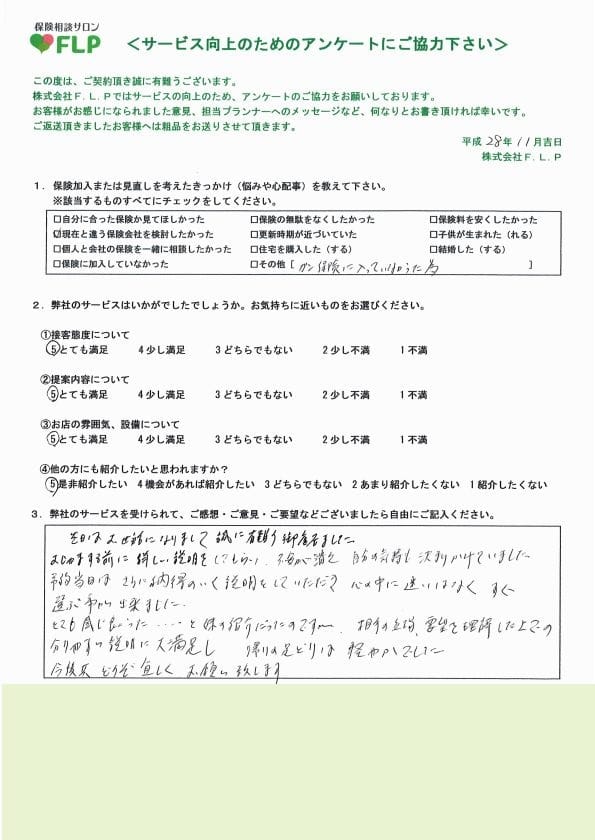 保険相談サロン
FLP
＜サービス向上のためのアンケートにご協力下さい＞
この度は、ご契約頂き誠に有難うございます。
株式会社Ｆ.Ｌ.Ｐではサービスの向上のため、アンケートのご協力をお願いしております。
お客様がお感じになられました意見、担当プランナーへのメッセージなど、何なりとお書き頂ければ幸いです。
ご返送頂きましたお客様へは粗品をお送りさせて頂きます。
平成 28年 11月吉日
株式会社Ｆ.Ｌ.Ｐ
１．保険加入または見直しを考えたきっかけ（悩みや心配事）を教えて下さい。
※該当するものすべてにチェックをしてください。
□自分に合った保険か見てほしかった □保険の無駄をなくしたかった □保険料を安くしたかった
☑現在と違う保険会社を検討したかった □更新時期が近づいていた □子供が生まれた（れる）
□個人と会社の保険を一緒に相談したかった □住宅を購入した（する） □結婚した（する）
□保険に加入していなかった □その他 [ ガン保険に入っていなかった為 ]
２．弊社のサービスはいかがでしたでしょうか。お気持ちに近いものをお選びください。
①接客態度について
5とても満足 4少し満足 3どちらでもない 2少し不満 1不満
②提案内容について
5とても満足 4少し満足 3どちらでもない 2少し不満 1不満
③お店の雰囲気、設備について
5とても満足 4少し満足 3どちらでもない 2少し不満 1不満
④他の方にも紹介したいと思われますか？
5是非紹介したい 4機会があれば紹介したい 3どちらでもない 2あまり紹介したくない 1紹介したくない
３．弊社のサービスを受けられて、ご感想・ご意見・ご要望などございましたら自由にご記入ください。
先日はお世話になりまして誠に有難う御座居ました
する前に詳しい説明をしてもらい、不安が消え 自分の気持も決まりかけていました
予約当日は さらに納得のいく説明をしていただき 心の中に迷いはなく すぐ
選ぶ事が出来ました.
とても感じ良かった……と妹の紹介だったのですが、相手の立場、要望を理解した上での
分りやすい説明に大満足し 帰りの足どりは 軽やかでした
今後共 どうぞ宜しく お願い致します